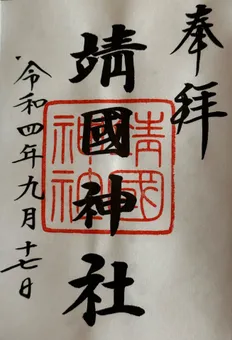 奉拝
靖國神社
靖國神社
令和四年九月十七日